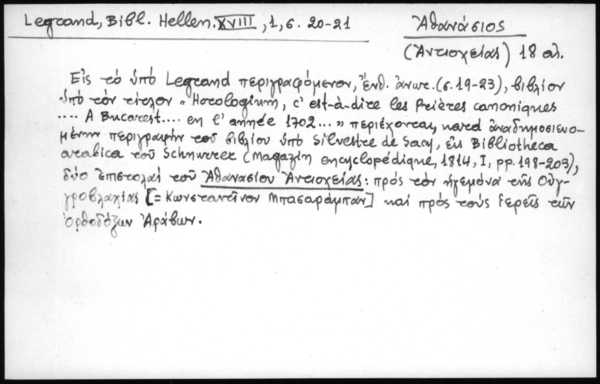 Legrand, Bibl. Hellen. XVIII, 1, σ. 20-21
Ἀθανάσιος
(Ἀντιοχείας) 18 αἰ.
Εἰς τὸ ὑπὸ Legrand περιγραφόμενον, ἔνθ. ἀνωτ. (σ. 19-23), βιβλίον
ὑπὸ τὸν τίτλον "Horologium, c'est-à-dire les Prières canoniques
.... A Bucarest.... en l'année 1702..." περιέχονται, κατὰ ἀναδημοσιευο-
μένην περιγραφὴν τοῦ βιβλίου ὑπὸ Silvestre de Sacy, εἰς Bibliotheca
arabica τοῦ Schnurrer (Magazin encyclopédique, 1814, I, pp. 198-203),
δύο ἐπιστολαὶ τοῦ Ἀθανασίου Ἀντιοχείας: πρὸς τὸν ἡγεμόνα τῆς Οὑγ-
γροβλαχίας [= Κωνσταντῖνον Μπασαράμπαν] καὶ πρὸς τοὺς ἱερεῖς τῶν
ὀρθοδόξων Ἀράβων.